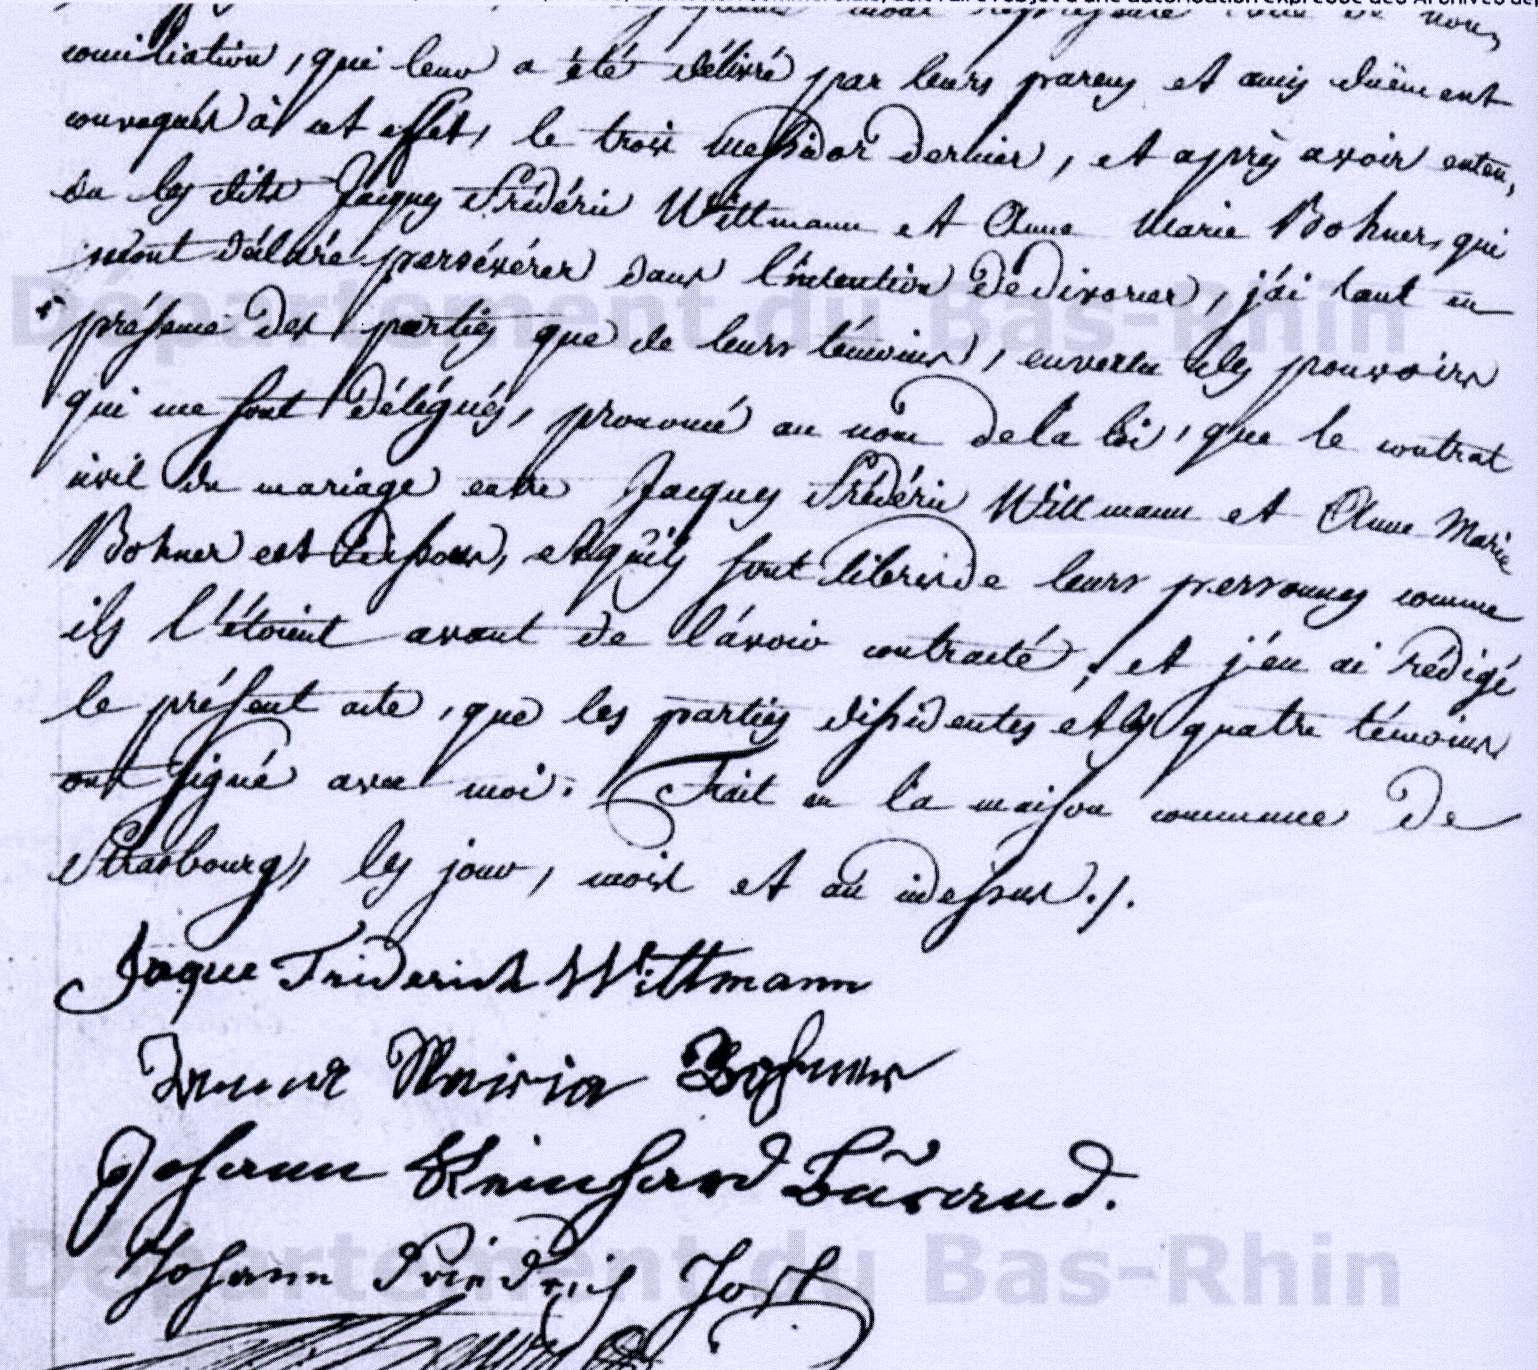 conciliation, qui leur a été délivré par leurs parens et amis duëment
convoqués à cet effet, le trois messidor dernier, et après avoir enten,
du les dits Jacques Frédéric Wittmann et Anne Marie Bohner, qui
m'ont déclaré persévérer dans l'intention de divorcer, j'ai tant en
présence des parties que de leurs témoins, en vertu des pouvoirs
qui me sont délégués, prononcé au nom de la loi, que le contrat
civil du mariage entre Jacques Frédéric Wittmann et Anne Marie
Bohner est dissous, et qu'ils sont libres de leurs personnes comme
ils l'étoient avant de l'avoir contracté, et j'en ai rédigé
le présent acte, que les parties dissidentes et les quatre témoins
ont signé avec moi. Fait en la maison commune de
Strasbourg, les jour, mois et an cidessus ./.
Jaque Friderich Wittmann
Anna Maria Bohner
Johann Reinhard
Johann Friedrich Jost
Département du Bas-Rhin
Département du Bas-Rhin